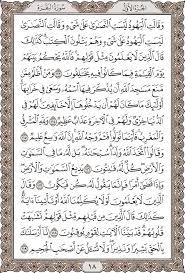 الجزء الأول سورة البقرة
وَقَالَتِ ٱلۡيَهُودُ لَيۡسَتِ ٱلنَّصَٰرَىٰ عَلَىٰ شَيۡءٖ وَقَالَتِ ٱلنَّصَٰرَىٰ
لَيۡسَتِ ٱلۡيَهُودُ عَلَىٰ شَيۡءٖ وَهُمۡ يَتۡلُونَ ٱلۡكِتَٰبَۗ كَذَٰلِكَ
قَالَ ٱلَّذِينَ لَا يَعۡلَمُونَ مِثۡلَ قَوۡلِهِمۡۚ فَٱللَّهُ يَحۡكُمُ بَيۡنَهُمۡ
يَوۡمَ ٱلۡقِيَٰمَةِ فِيمَا كَانُواْ فِيهِ يَخۡتَلِفُونَ ١١٣ وَمَنۡ أَظۡلَمُ مِمَّن
مَّنَعَ مَسَٰجِدَ ٱللَّهِ أَن يُذۡكَرَ فِيهَا ٱسۡمُهُۥ وَسَعَىٰ فِي خَرَابِهَآۚ
أُوْلَٰٓئِكَ مَا كَانَ لَهُمۡ أَن يَدۡخُلُوهَآ إِلَّا خَآئِفِينَۚ لَهُمۡ فِي
ٱلدُّنۡيَا خِزۡيٞ وَلَهُمۡ فِي ٱلۡأٓخِرَةِ عَذَابٌ عَظِيمٞ ١١٤ وَلِلَّهِ ٱلۡمَشۡرِقُ
وَٱلۡمَغۡرِبُۚ فَأَيۡنَمَا تُوَلُّواْ فَثَمَّ وَجۡهُ ٱللَّهِۚ إِنَّ ٱللَّهَ وَٰسِعٌ عَلِيمٞ ١١٥
وَقَالُواْ ٱتَّخَذَ ٱللَّهُ وَلَدٗاۗ سُبۡحَٰنَهُۥۖ بَل لَّهُۥ مَا فِي ٱلسَّمَٰوَٰتِ
وَٱلۡأَرۡضِۖ كُلّٞ لَّهُۥ قَٰنِتُونَ ١١٦ بَدِيعُ ٱلسَّمَٰوَٰتِ
وَٱلۡأَرۡضِۖ وَإِذَا قَضَىٰٓ أَمۡرٗا فَإِنَّمَا يَقُولُ لَهُۥ كُن فَيَكُونُ ١١٧
وَقَالَ ٱلَّذِينَ لَا يَعۡلَمُونَ لَوۡلَا يُكَلِّمُنَا ٱللَّهُ أَوۡ تَأۡتِينَآ ءَايَةٞۗ
كَذَٰلِكَ قَالَ ٱلَّذِينَ مِن قَبۡلِهِم مِّثۡلَ قَوۡلِهِمۡۘ تَشَٰبَهَتۡ
قُلُوبُهُمۡۗ قَدۡ بَيَّنَّا ٱلۡأٓيَٰتِ لِقَوۡمٖ يُوقِنُونَ ١١٨ إِنَّآ أَرۡسَلۡنَٰكَ
بِٱلۡحَقِّ بَشِيرٗا وَنَذِيرٗاۖ وَلَا تُسۡـَٔلُ عَنۡ أَصۡحَٰبِ ٱلۡجَحِيمِ ١١٩
١٨